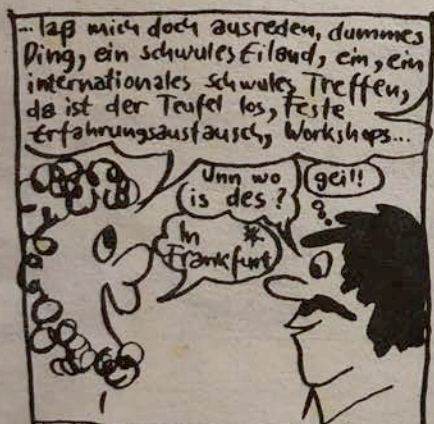 ... laß mich doch ausreden, dummes
Ding, ein schwules Eiland, ein, ein
internationales schwules Treffen,
da ist der Teufel los, Feste
Erfahrungsaustausch, Workshops...
Unn wo
is des?
gei!!
In *
Frankfurt